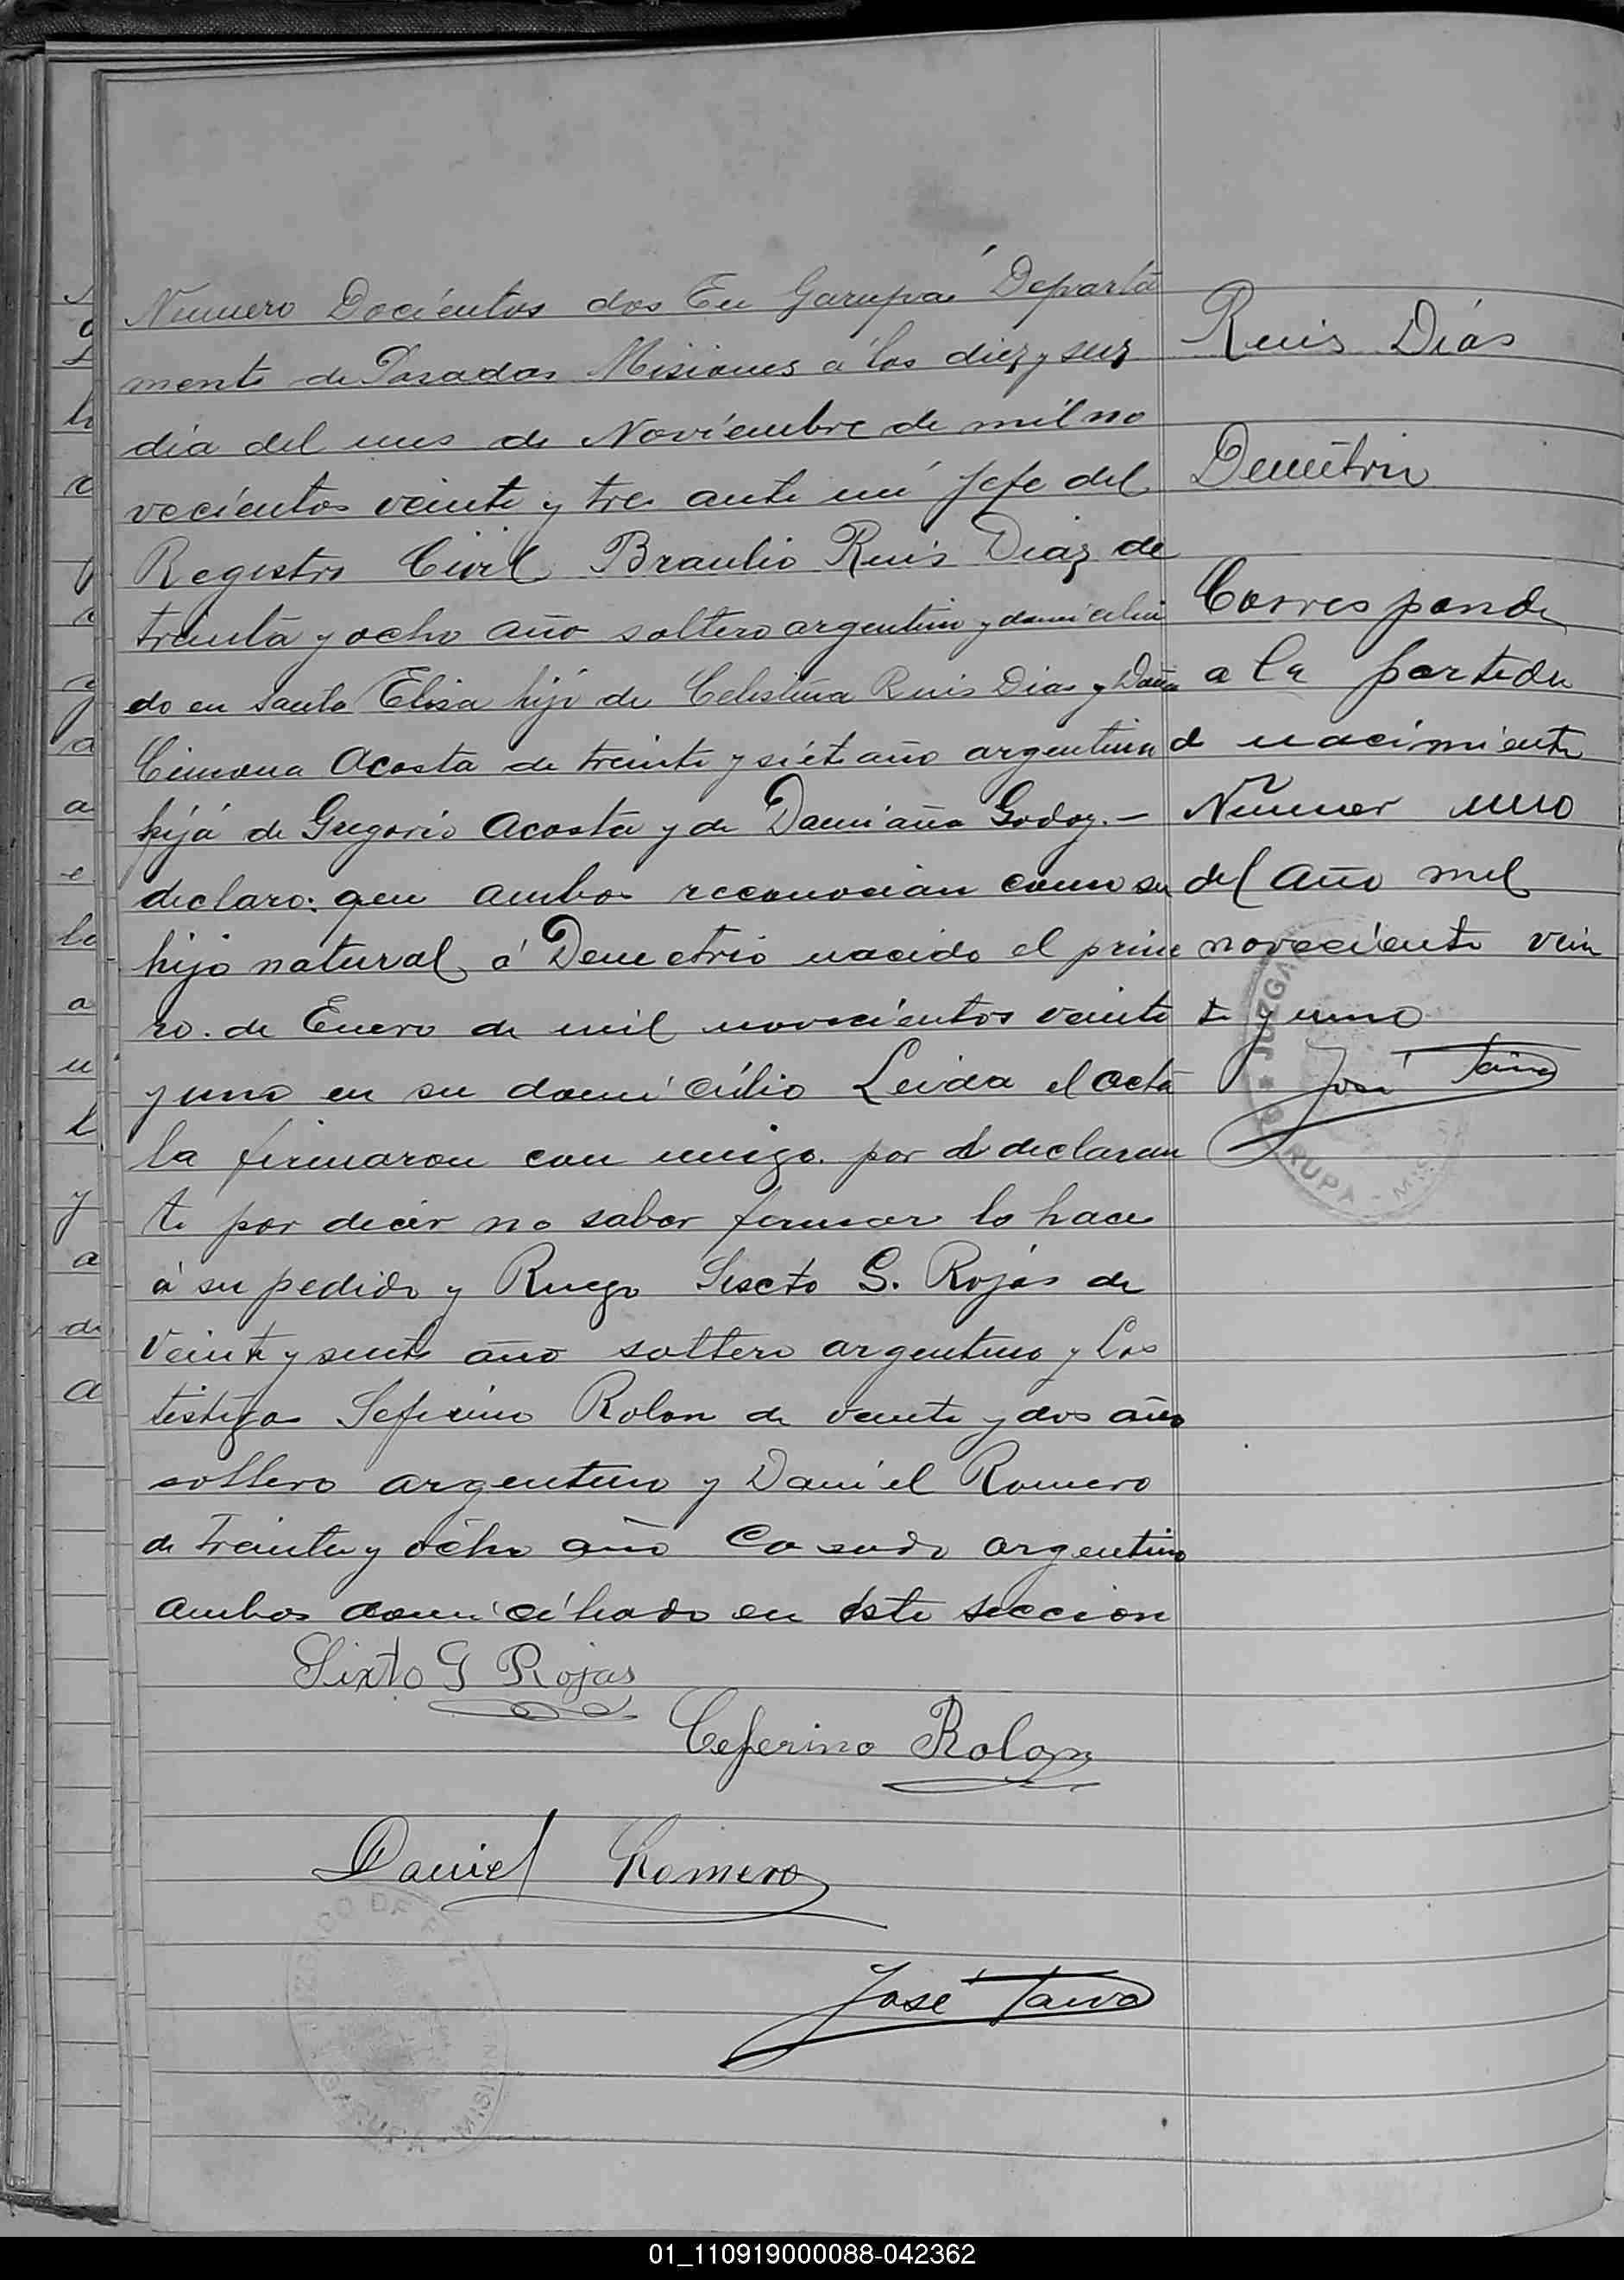 Numero Docientos dos En Garupá Departa
mento de Posadas Misiones a los diez y seis
dia del mes de Noviembre de mil no
vecientos veinte y tre ante mi Jefe del
Registro Civil Braulio Ruis Diaz de
treinta y ocho año soltero argentino y domicilia
do en Santa Elisa hijo de Celestina Ruis Dias y Doña
Cimona Acosta de treinta y siete año argentina
hijá de Gregorio Acosta y de Damiaña Godoy. –
declaro: que ambos reconocian como su
hijo natural á Demetrio nacido el prime
ro. de Enero de mil novecientos veinte
y uno en su domicilio Leida el acta
la firmaron con migo. por el declaran
te por decir no saber firmar lo hace
á su pedido y Ruego Siscto G. Rojas de
Veinte y siete año soltero argentino y los
testigos Seferino Rolon de veinte y dos año
soltero argentino y Daniel Romero
de treinta y ocho año Casado argentino
ambos domiciliado en este seccion
Sixto G Rojas
Ceferino Rolon
Daniel Romero
José
Ruis Diás
Demetrio
Corresponde
a la partida
d nacimiento
Numer uno
del año mil
noveciento vein
te y uno
José
JUZGA
GARUPA - MIS
01_110919000088-042362